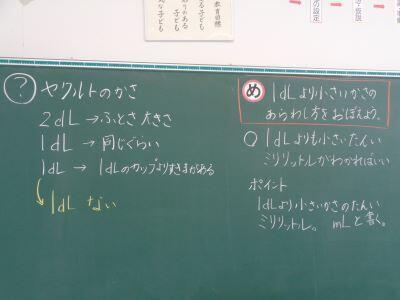 教育目標
? ヤクルトのかさ
2dL →ふとさ 大きさ
1dL → 同じぐらい
1dL → 1dLのカップよりすきまがある
1dL ない
め 1dLより小さいかさの
あらわし方をおぼえよう。
○ 1dLよりも小さいたんい
ミリリットルがわかればいい
ポイント
1dLより小さいかさのたんい
ミリリットル。 mLと書く。